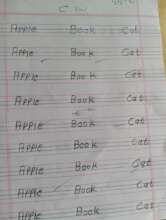 C.W
Apple Book Cat
Apple Book Cat
Apple Book Cat
Apple Book Cat
Apple Book Cat
Apple Book Cat
Apple Book Cat
Apple Book Cat
Apple Book Cat